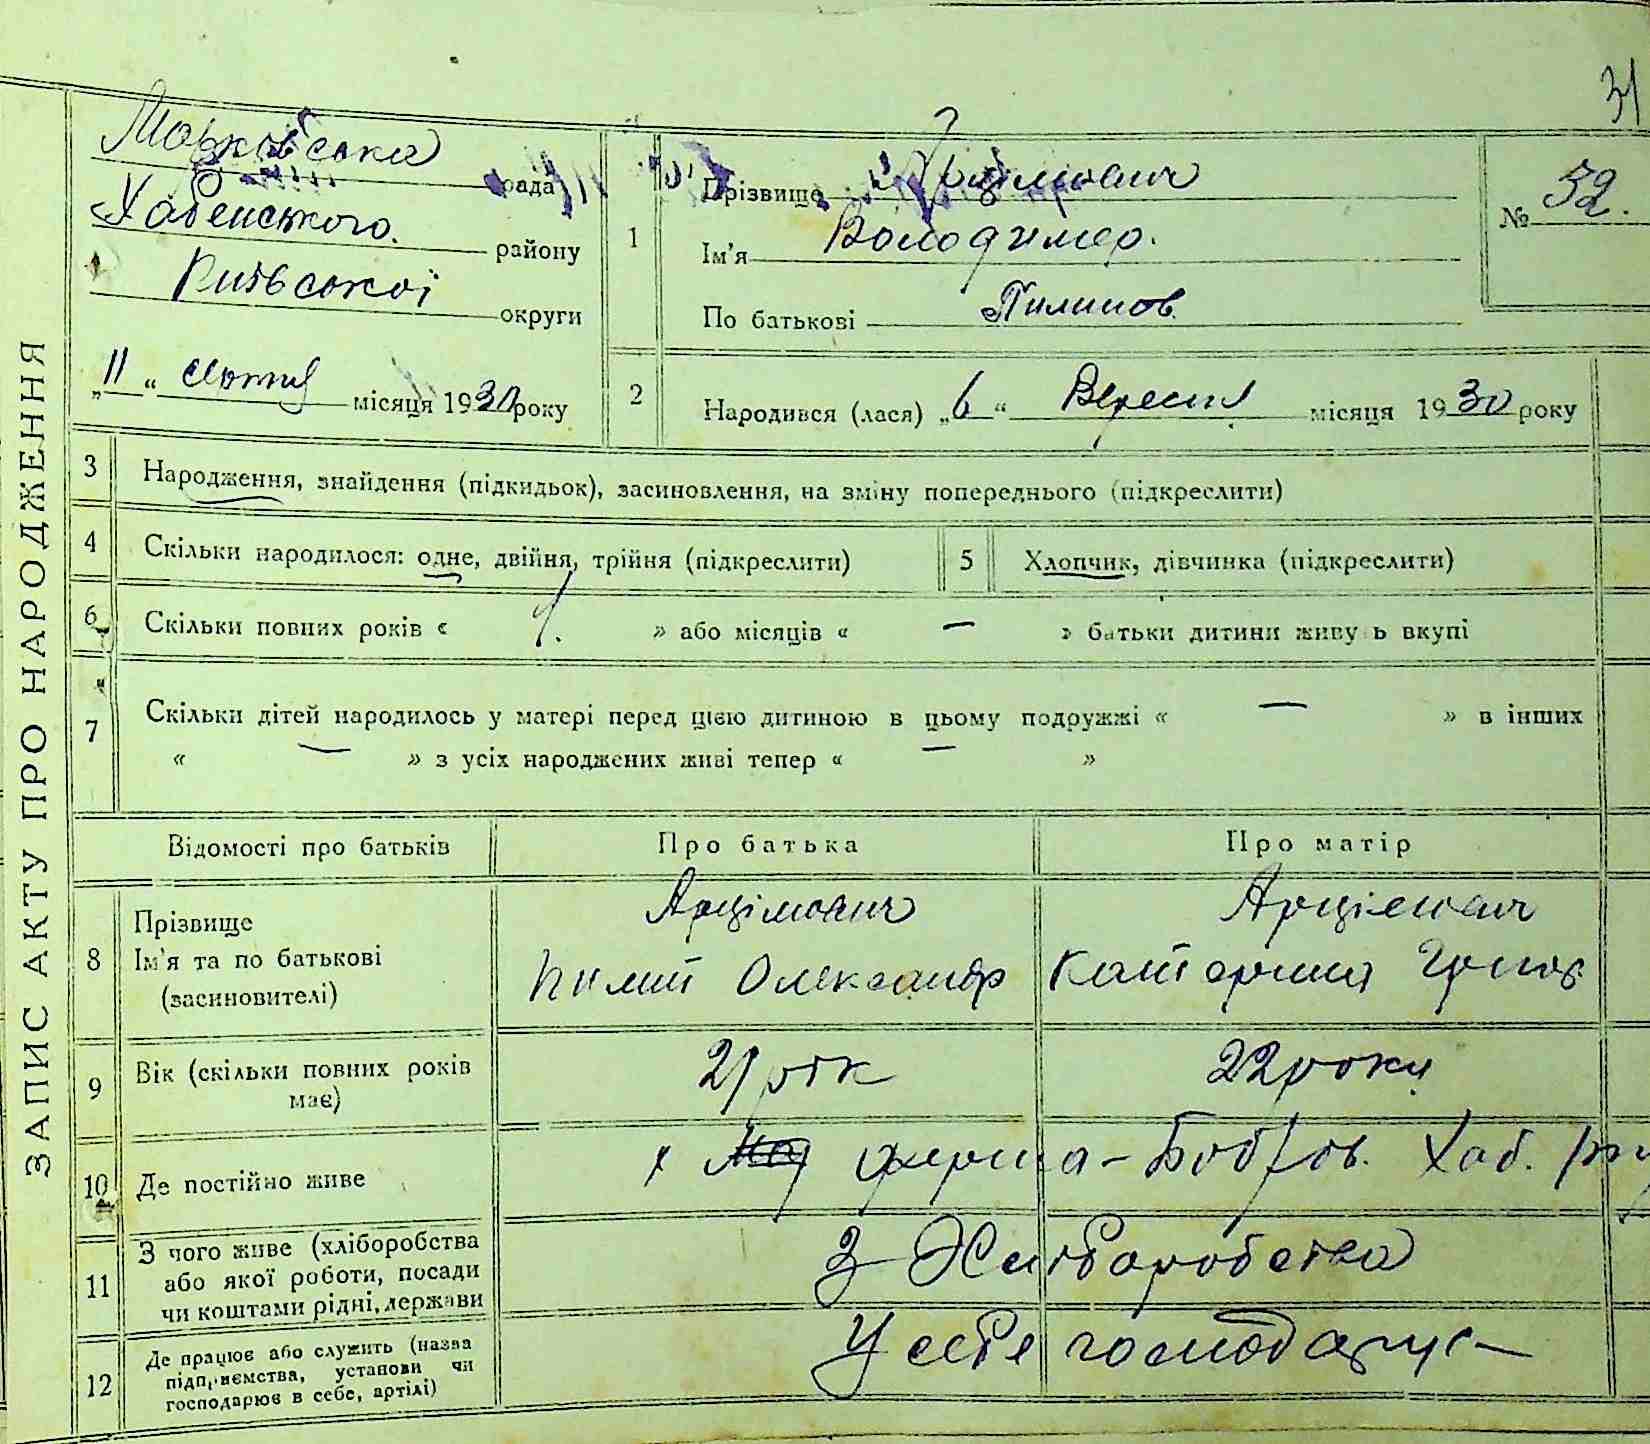 31
ЗАПИС АКТУ ПРО НАРОДЖЕННЯ
Марковська рада
Хабенського району
Київської округи
„11“ лютня місяця 1930 року
1
Прізвище Арцімович
Ім'я Володимер.
По батькові Пилипов.
№ 52.
2
Народився (лася) „6“ Вересня місяця 1930 року
3 Народження, знайдення (підкидьок), засиновлення, на зміну попереднього (підкреслити)
4 Скільки народилося: одне, двійня, трійня (підкреслити)
5 Хлопчик, дівчинка (підкреслити)
6 Скільки повних років « 1. » або місяців « — » батьки дитини живуть вкупі
7 Скільки дітей народилось у матері перед цією дитиною в цьому подружжі « — » в інших
« — » з усіх народжених живі тепер « — »
Відомості про батьків Про батька Про матір
8 Прізвище
Ім'я та по батькові
(засиновителі)
Арцімович
Пилип Олександр
Арцімович
Катерина Григов
9 Вік (скільки повних років
має)
21 рік 22 роки
10 Де постійно живе
х ферма-Бобров. Хаб.
11 З чого живе (хліборобства
або якої роботи, посади
чи коштами рідні, держави
З Хліборобства
12 Де працює або служить (назва
підприємства, установи чи
господарює в себе, артілі)
У себе господарує